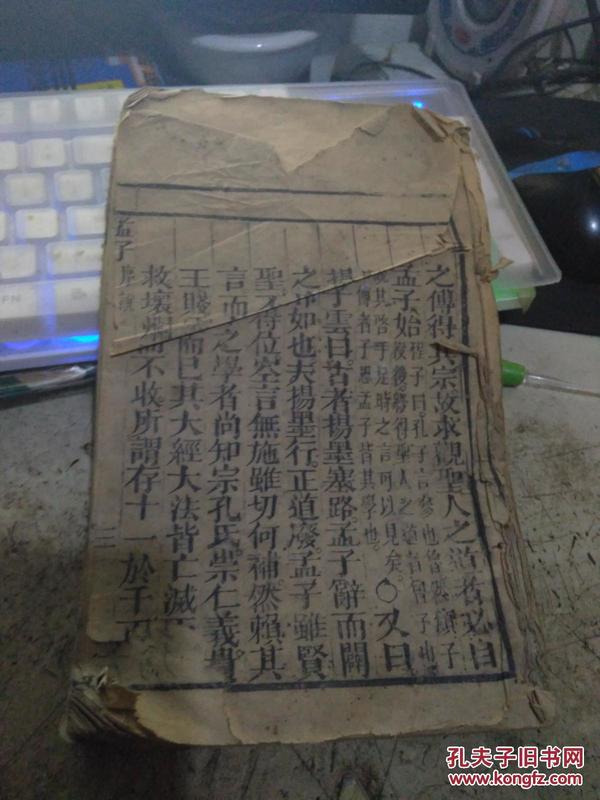 之傳得其宗故求觀聖人之道者必自
孟子始程子曰孔子言參也魯然顏子
沒後終得聖人之道者曾子也
觀其啓手足時之言可以見矣
所傳者子思孟子皆其學也。〇又曰
揚子雲曰古者揚墨塞路孟子辭而闢
之廓如也夫揚墨行正道廢孟子雖賢
聖不得位空言無施雖切何補然賴其
言而之學者尚知宗孔氏崇仁義貴
王賤而已其大經大法皆亡滅
救壞而不收所謂存十一於千百
孟子
序
三
孔夫子旧书网
www.kongfz.com